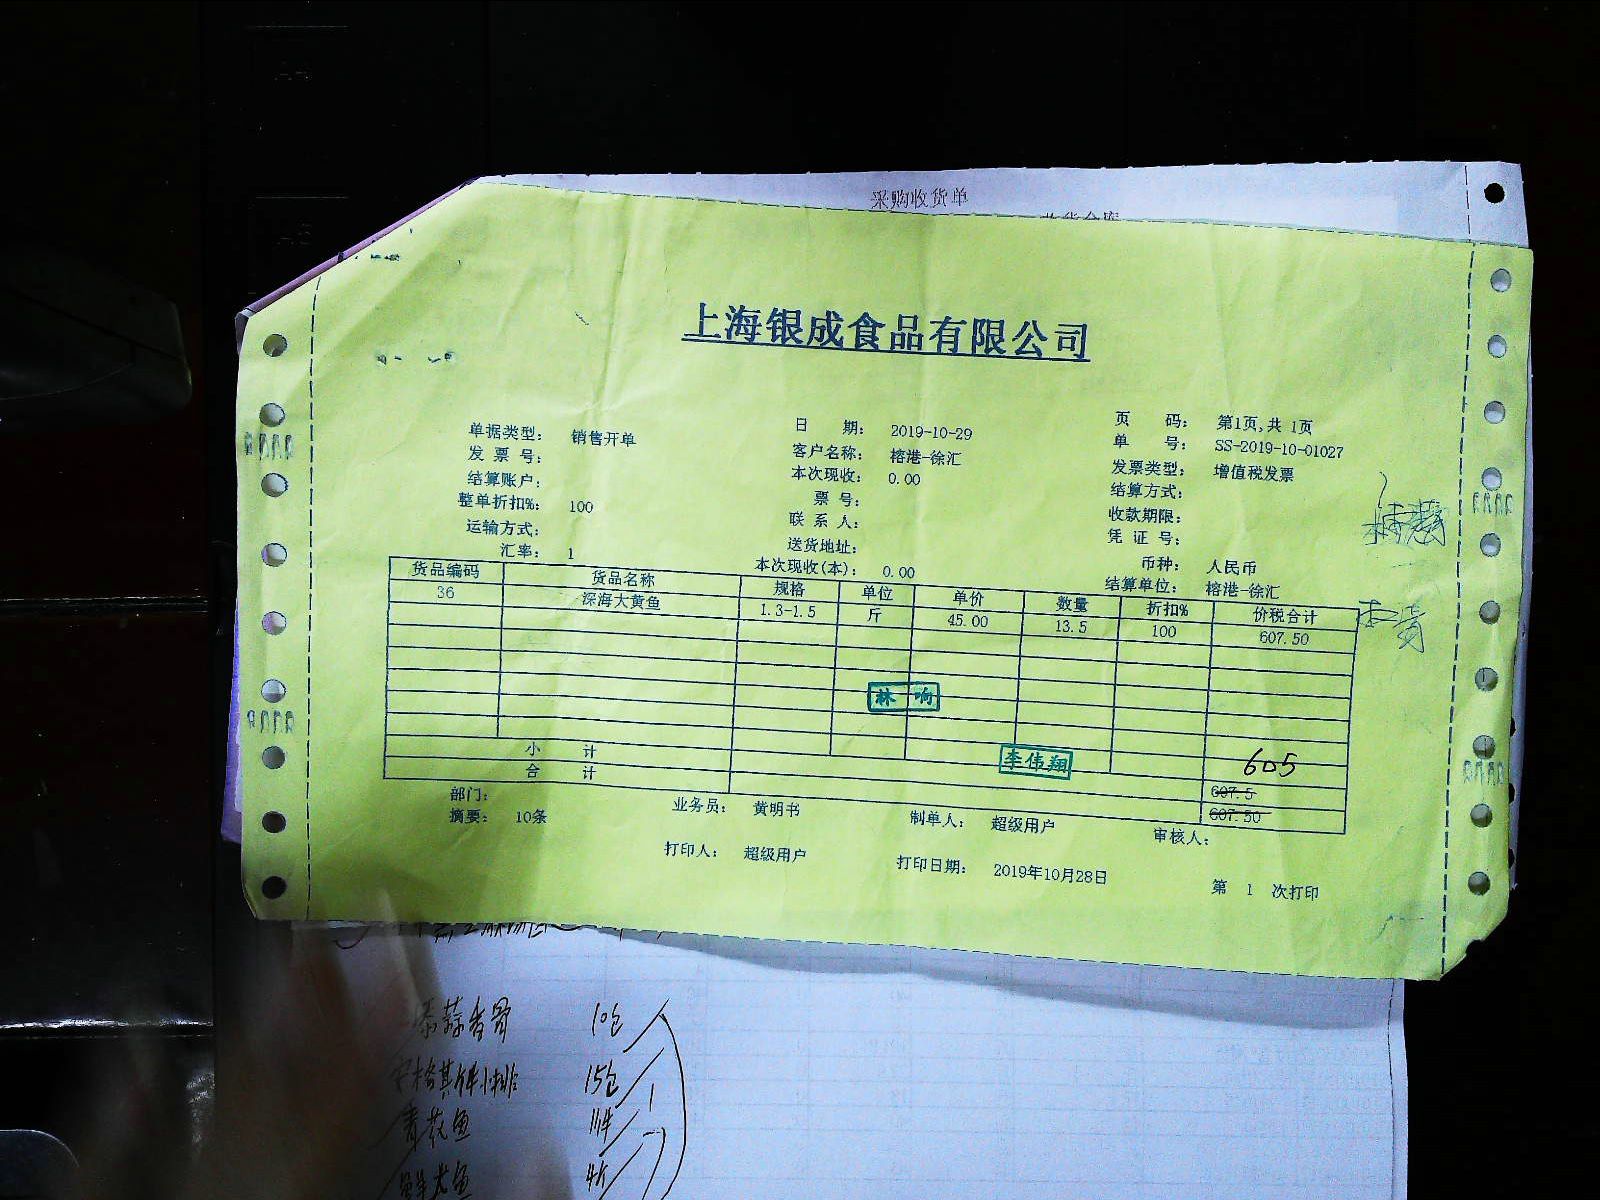 采购收货单
上海银成食品有限公司
单据类型： 销售开单 日 期： 2019-10-29 页 码： 第1页,共 1页
发 票 号： 客户名称： 榕港-徐汇 单 号： SS-2019-10-01027
结算账户： 本次现收： 0.00 发票类型： 增值税发票
整单折扣%： 100 票 号： 结算方式：
运输方式： 联 系 人： 收款期限：
汇率： 1 送货地址： 凭 证 号：
本次现收(本)： 0.00 币种： 人民币
结算单位： 榕港-徐汇
货品编码 货品名称 规格 单位 单价 数量 折扣% 价税合计
36 深海大黄鱼 1.3-1.5 斤 45.00 13.5 100 607.50
林 响
李伟翔
605
小 计 607.5
合 计 607.50
部门： 业务员： 黄明书 制单人： 超级用户 审核人：
摘要： 10条
打印人： 超级用户 打印日期： 2019年10月28日 第 1 次打印
蒜香骨 10包
15包
青花鱼